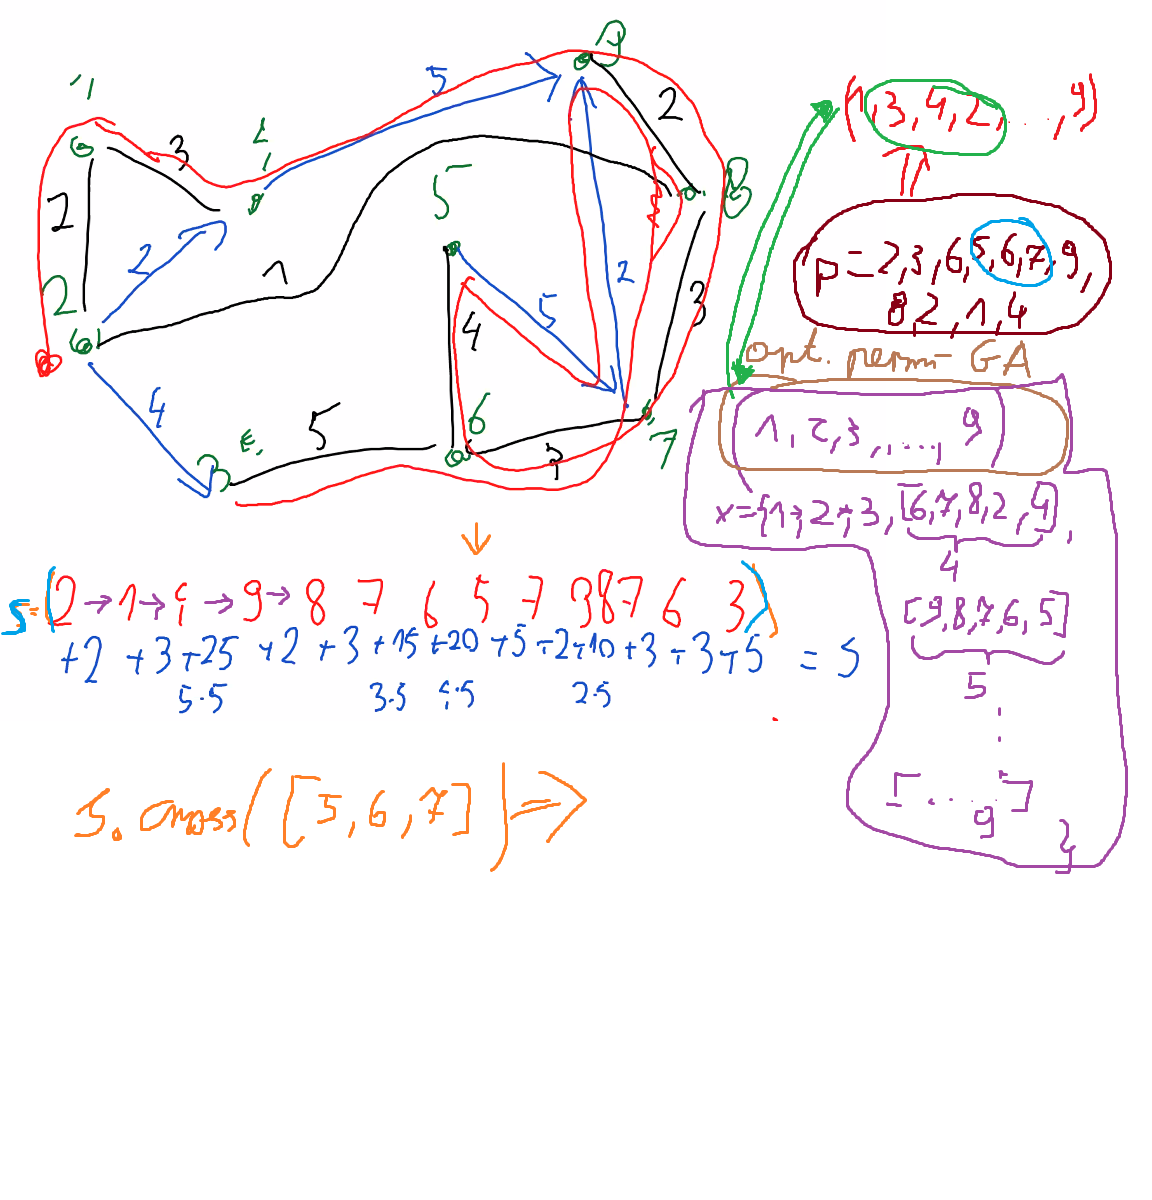 1
3
2
2
2
1
4
5
5
5
4
5
6
9
2
8
3
2
7
(1,3,4,2,...,9)
p=2,3,6,5,6,7,9,
8,2,1,4
opt. perm - GA
1,2,3,,...,9
x={1→,2→,3,[6,7,8,2,9],
4
[9,8,7,6,5]
5
[....]
9
}
S=(2→1→4→9→8 7 6 5 7 9 8 7 6 3)
+2 +3 +25 +2 +3 +15 +20 +5 +2 +10 +3 +3 +5 = S
5·5 3·5 4·5 2·5
S.cross([5,6,7])⇒